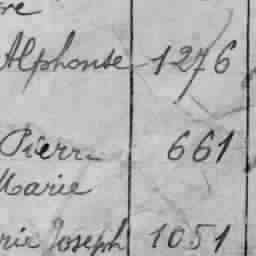 re
Alphonse 1276
Pierre 661
Marie
rie Joseph 1051